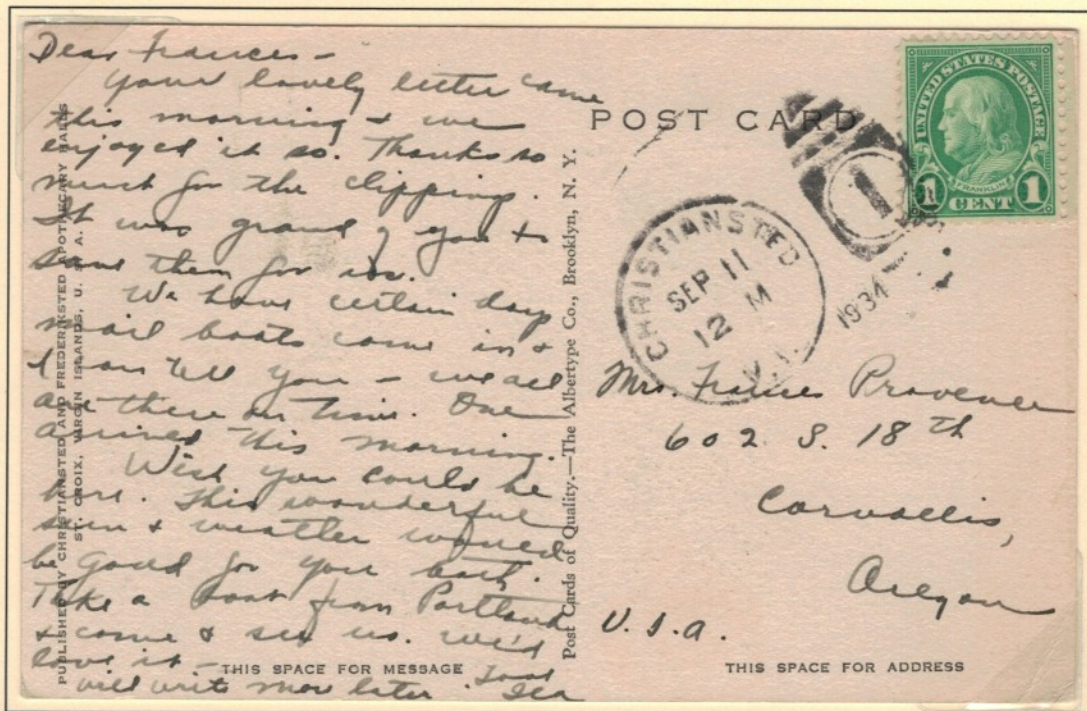 Dear Frances -
Your lovely letter came
this morning & we
enjoyed it so. Thanks so
much for the clippings.
It was grand of you to
save them for us.
We have certain days
mail boats come in &
I can tell you - we all
are there on time. One
arrived this morning.
Wish you could be
here. This wonderful
sun & weather would
be good for you both.
Take a boat from Portland
& come & see us. We'd
love it -
will write more later.
PUBLISHED BY CHRISTIANSTED AND FREDERIKSTED APOTHECARY HALLS
ST. CROIX, VIRGIN ISLANDS, U. S. A.
THIS SPACE FOR MESSAGE
Post Cards of Quality.—The Albertype Co., Brooklyn, N. Y.
POST CARD
UNITED STATES POSTAGE
FRANKLIN
1 CENT 1
CHRISTIANSTED
SEP 11
12 M
V.I.
1934
1
Mrs. Frances Provence
602 S. 18th
Corvallis,
Oregon
U.S.A.
THIS SPACE FOR ADDRESS